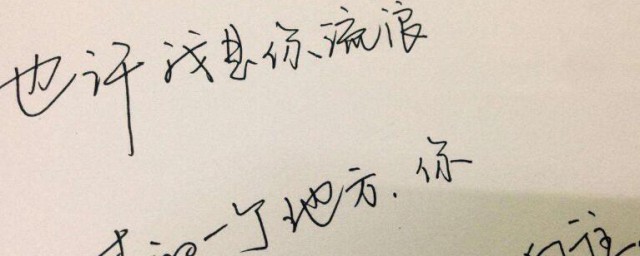 也许我是你流浪
一个地方，你